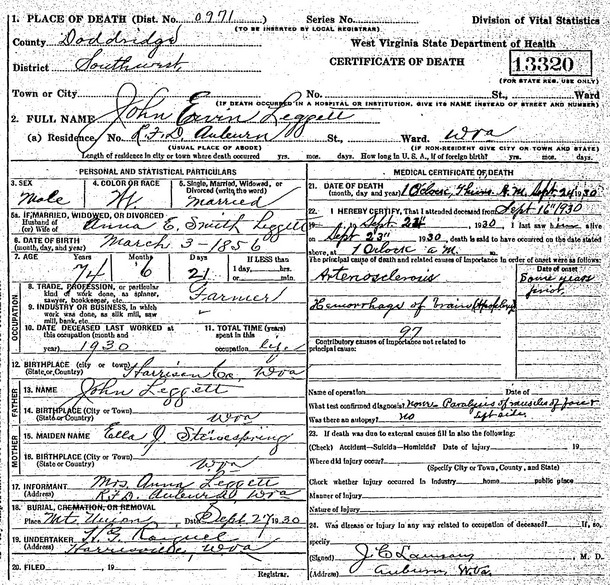 1. PLACE OF DEATH (Dist. No. 0971
Series No.
Division of Vital Statistics
(TO BE INSERTED BY LOCAL REGISTRAR)
County Doddridge
West Virginia State Department of Health
District Southwest
CERTIFICATE OF DEATH
13320
(FOR STATE REG. USE ONLY)
Town or City No. St., Ward
(IF DEATH OCCURRED IN A HOSPITAL OR INSTITUTION, GIVE ITS NAME INSTEAD OF STREET AND NUMBER)
2. FULL NAME John Ervin Leggett
(a) Residence. No. R.F.D. Auburn St., Ward. Wva
(USUAL PLACE OF ABODE)
(IF NON-RESIDENT GIVE CITY OR TOWN AND STATE)
Length of residence in city or town where death occurred yrs. mos. ds. How long in U. S. A., if of foreign birth? yrs. mos. ds.
PERSONAL AND STATISTICAL PARTICULARS
3. SEX
Male
4. COLOR OR RACE
W
5. Single, Married, Widowed, or Divorced (write the word)
married
5a. IF MARRIED, WIDOWED, OR DIVORCED
Husband of
(or) Wife of
Anna E. Smith Leggett
6. DATE OF BIRTH
(month, day, and year)
March 3-1856
7. AGE
Years
74
Months
6
Days
21
If LESS than
1 day, hrs.
or min.
OCCUPATION
8. TRADE, PROFESSION, or particular kind of work done, as spinner, sawyer, bookkeeper, etc.
Farmer
9. INDUSTRY OR BUSINESS, in which work was done, as silk mill, saw mill, bank, etc.
10. DATE DECEASED LAST WORKED at this occupation (month and year) 1930
11. TOTAL TIME (years) spent in this occupation life
12. BIRTHPLACE (city or town)
(State or Country)
Harrison Co, Wva
FATHER
13. NAME
John Leggett
14. BIRTHPLACE (City or Town)
(State or Country)
Wva
MOTHER
15. MAIDEN NAME Ella J. Steinespring
16. BIRTHPLACE (City or Town)
(State or Country)
Wva
17. INFORMANT Mrs. Anna Leggett
(Address) R.F.D. Auburn Wva
18. BURIAL, CREMATION, OR REMOVAL
Place Mt. Union Date Sept. 27 1930
19. UNDERTAKER
(Address) Harrisville, Wva
20. FILED , 19
Registrar.
MEDICAL CERTIFICATE OF DEATH
21. DATE OF DEATH
(month, day, and year) 1 O'clock, Thurs. A.M. Sept. 24 1930
22. I HEREBY CERTIFY, That I attended deceased from Sept 16th 1930
Sept. 24, 1930, I last saw h alive
on Sept 23rd 1930, death is said to have occurred on the date stated
above, at 1 O'clock a m.
The principal cause of death and related causes of importance in order of onset were as follows:
Date of onset
Arteriosclerosis
Some years
Hemorrhage of brain
97
Contributory causes of importance not related to principal cause:
Name of operation Date of
What test confirmed diagnosis? none - Paralysis of muscles of face &
Was there an autopsy? no
left side
23. If death was due to external causes fill in also the following:
(Check) Accident—Suicide—Homicide? Date of Injury 19
Where did injury occur?
(Specify City or Town, County, and State)
Check whether injury occurred in Industry home public place
Manner of Injury
Nature of Injury
24. Was disease or injury in any way related to occupation of deceased? If so,
specify
(Signed) , M. D.
(Address) Auburn, W.Va.